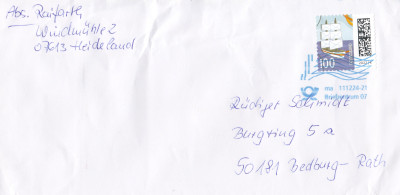 Abs. Raifarth
Windmühle 2
07613 Heideland
100
ma 111224-21
Briefzentrum 07
Rüdiger Schmidt
Burgring 5 a
50181 Bedburg-Rath